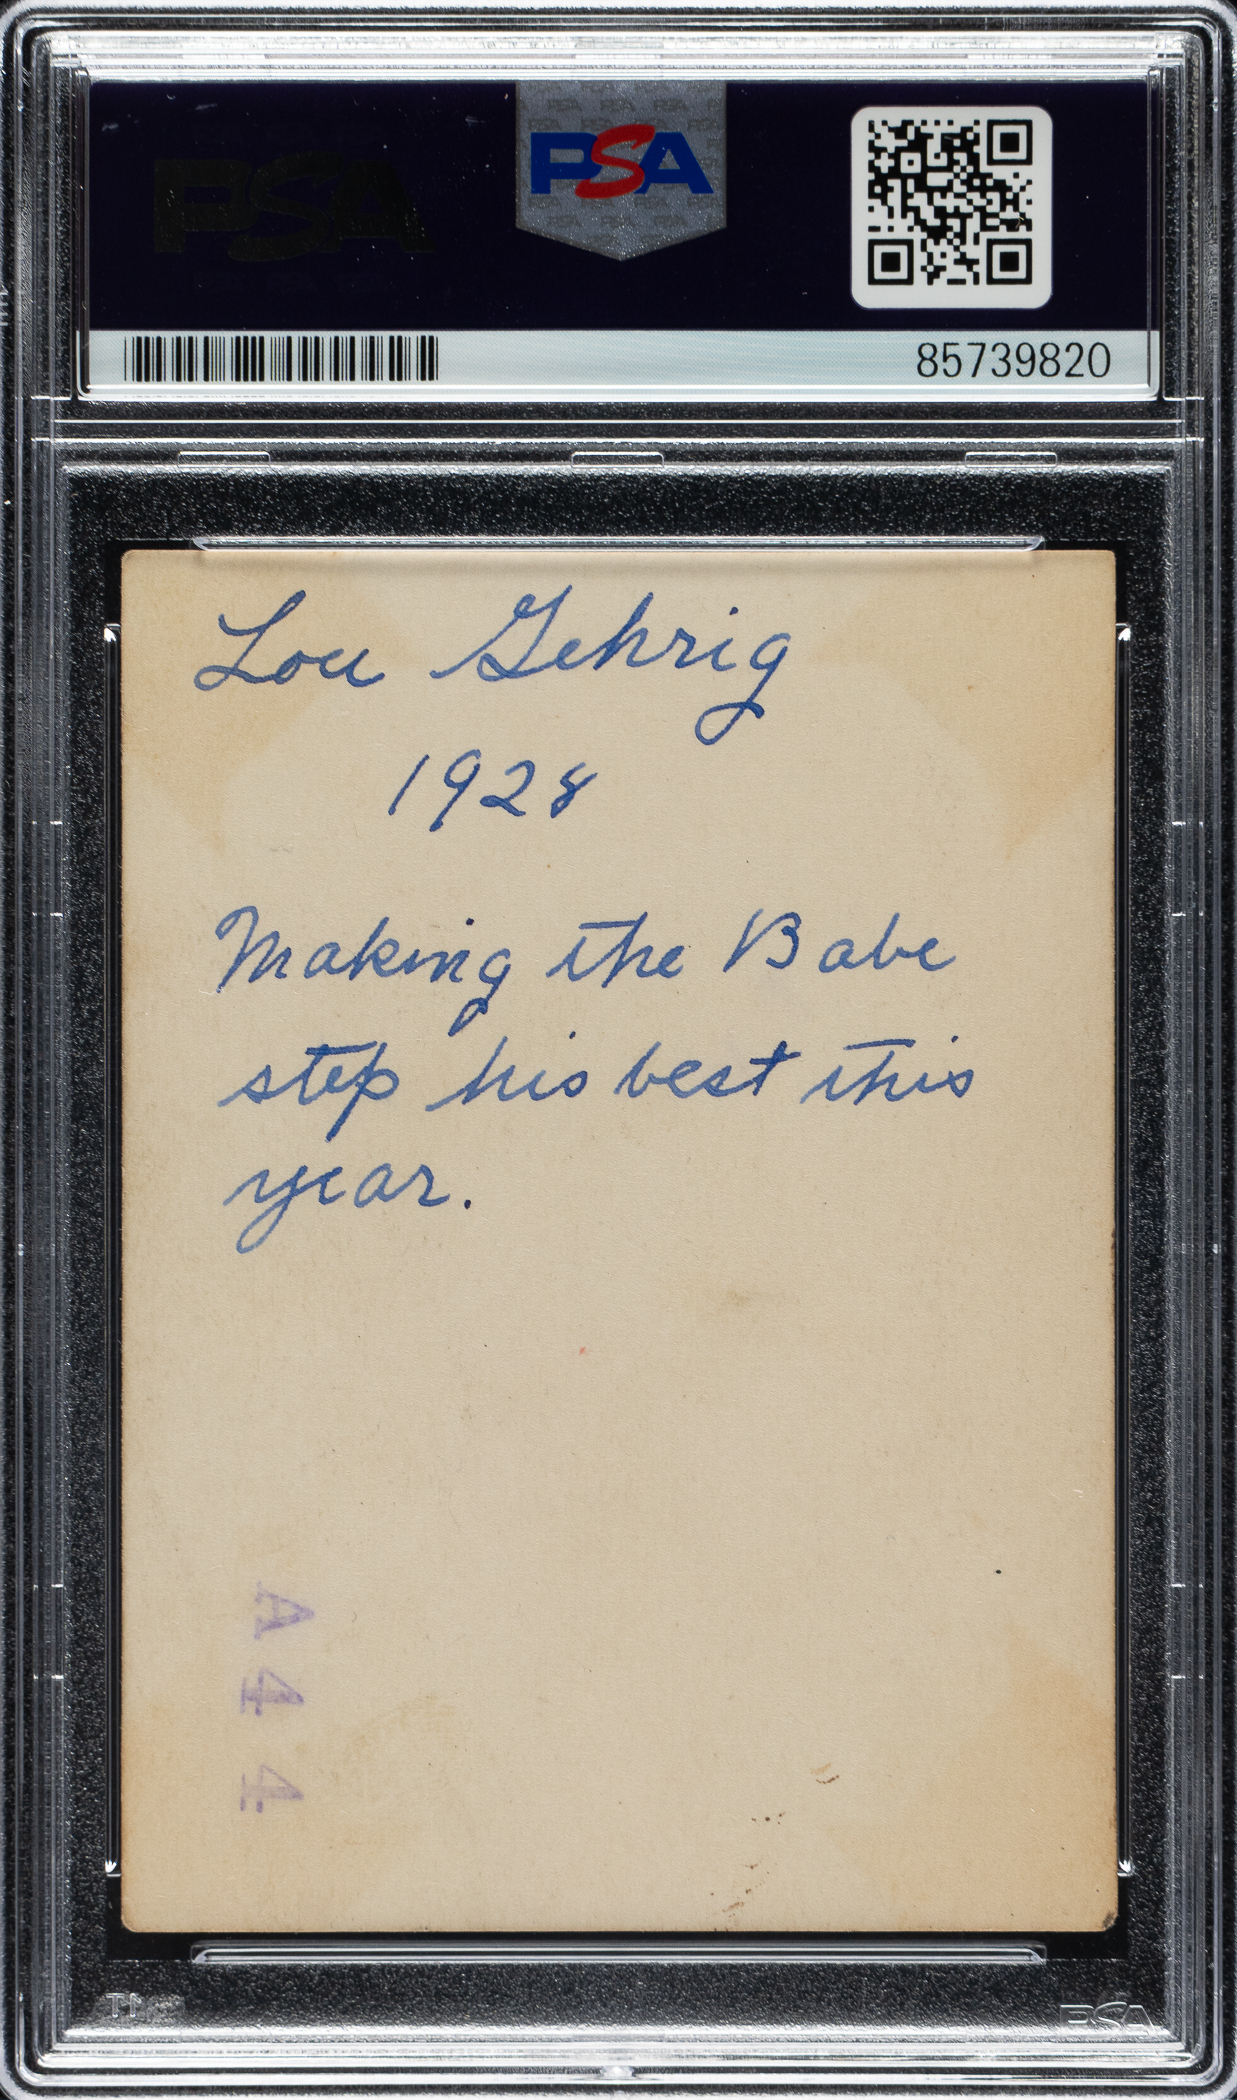 PSA
PSA
85739820
Lou Gehrig
1928
Making the Babe
step his best this
year.
A44
PSA